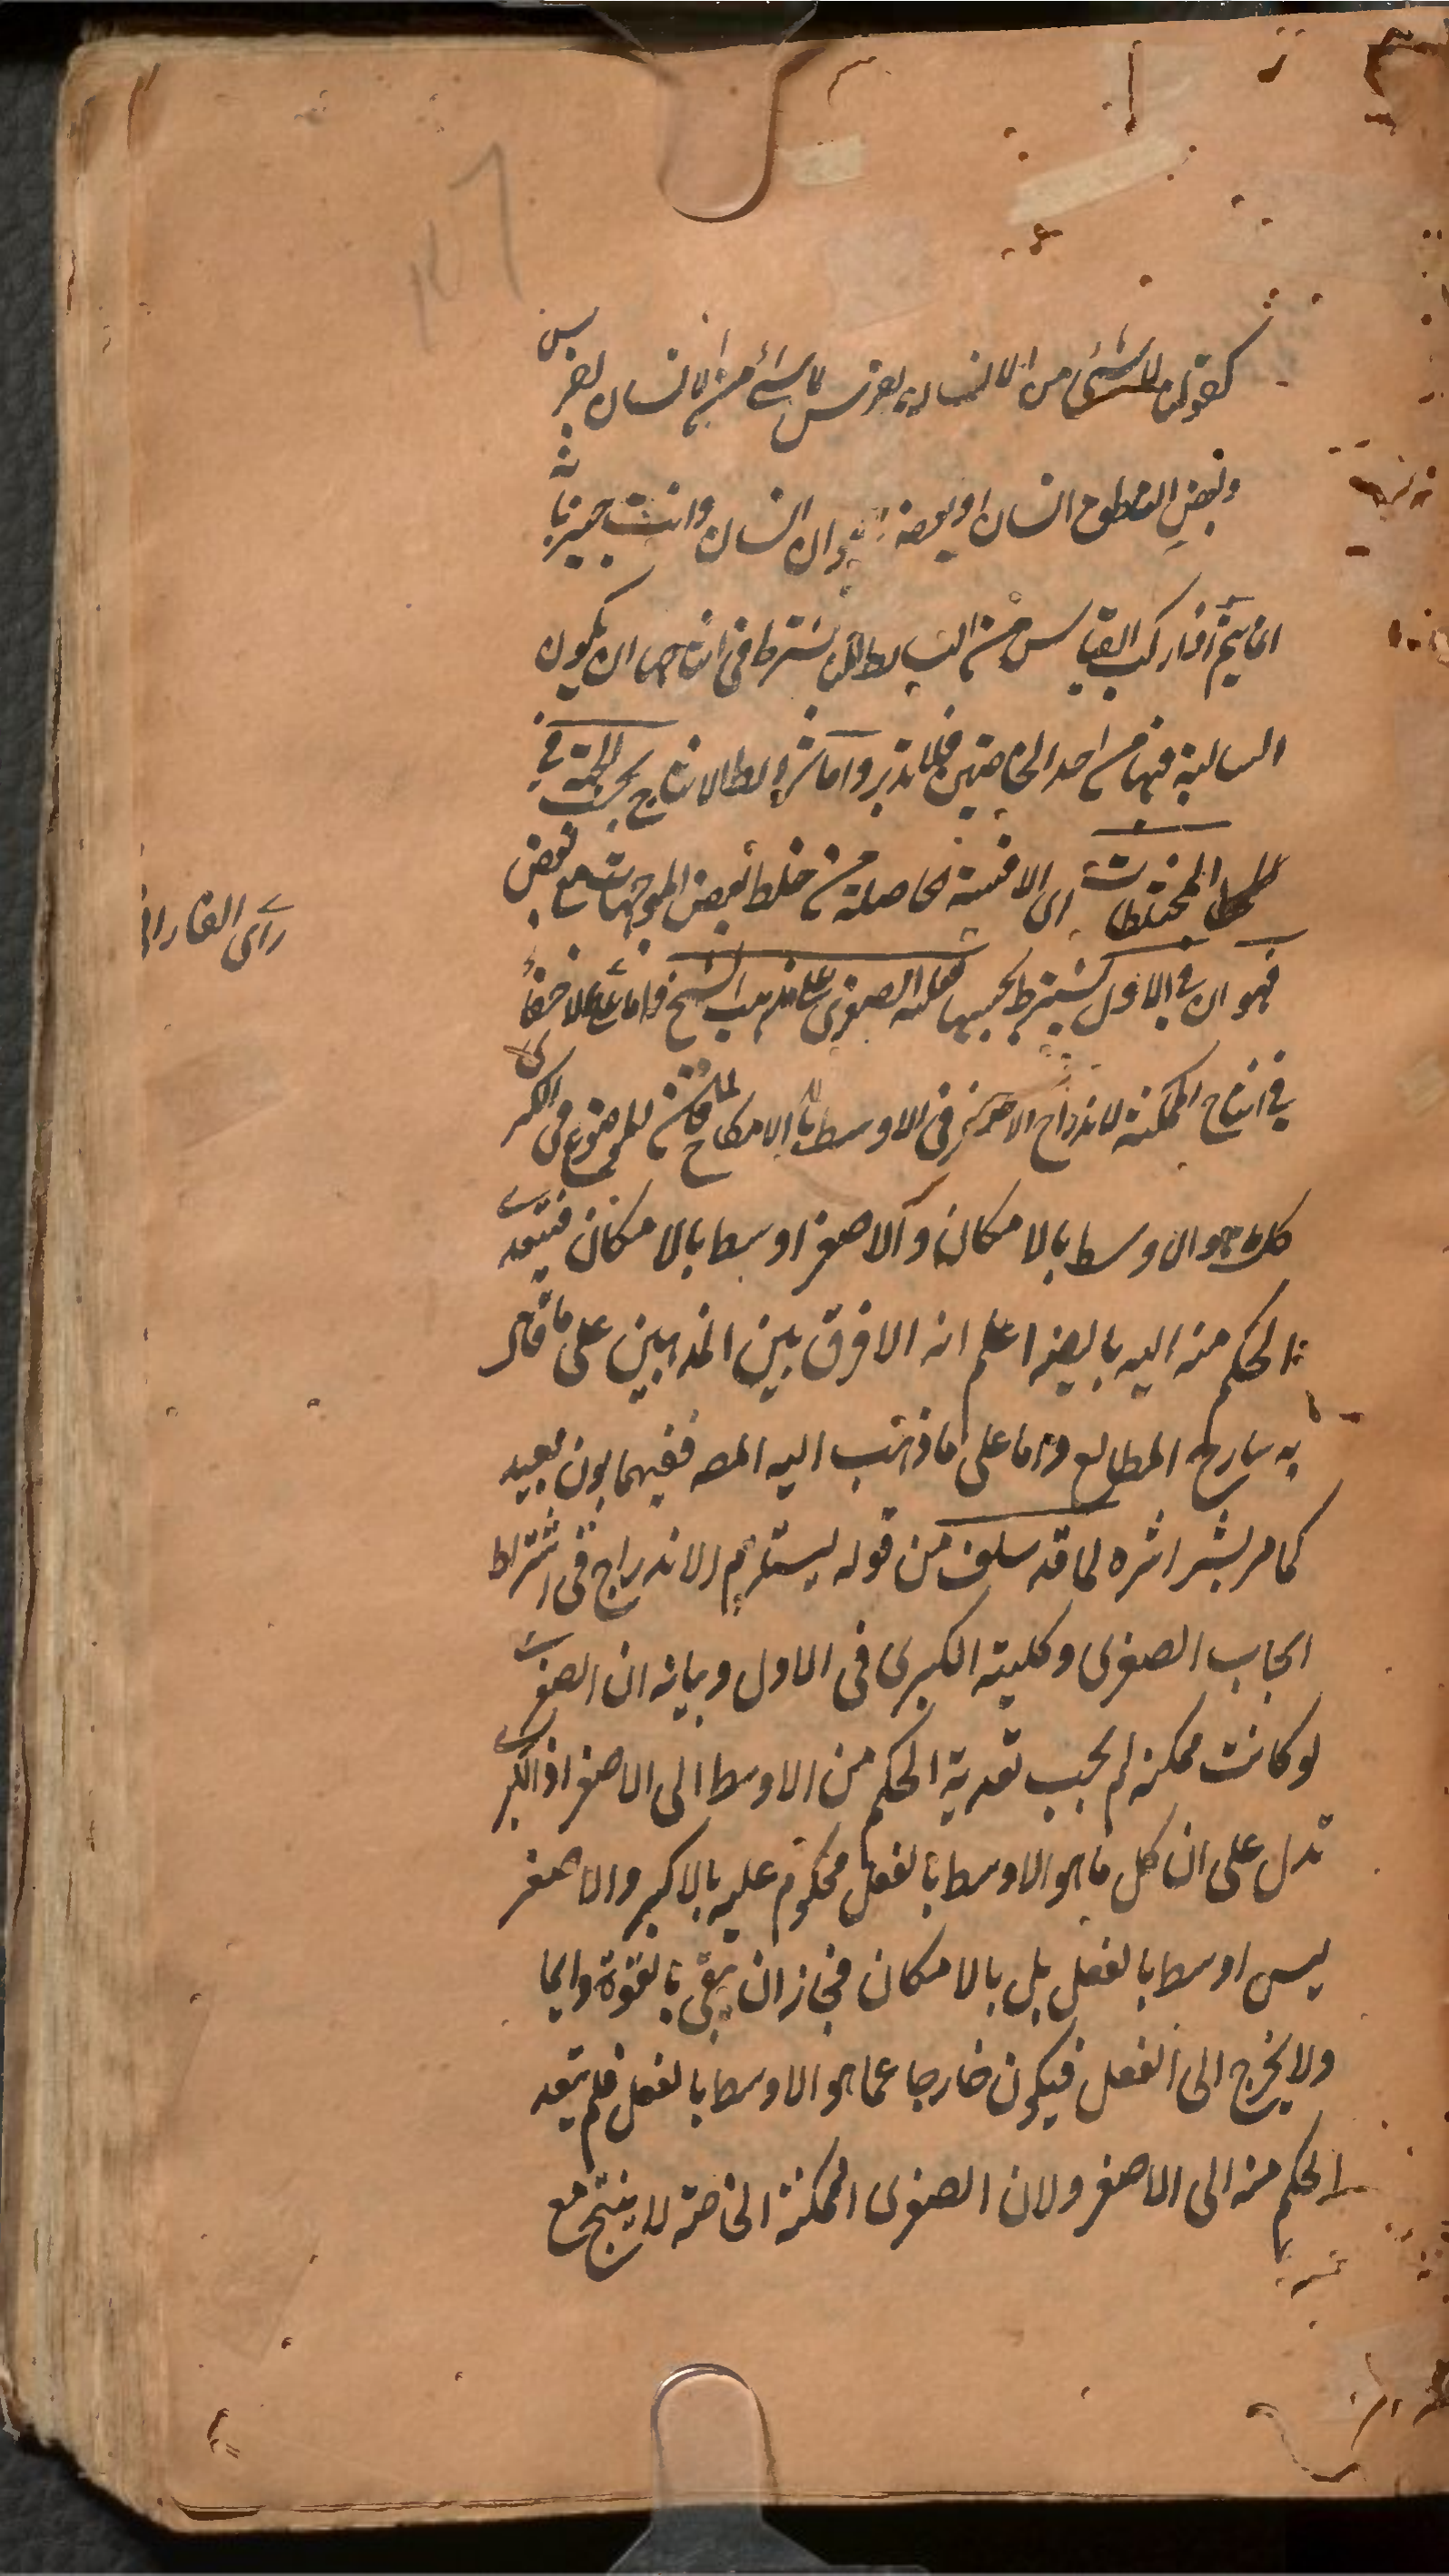 كقولنا لا شئ من الانسان بفرس لا شئ من الانسان بفرس
وبعض الناطق انسان او بعضه ان انسان وانت خبير بانه
انما يتم اذا ركب القياس من البسائط لكن نشترط في انتاجها ان يكون
السالبة فيها من احد الخاصتين فلا تذبر واما شرائط الانتاج بحسب الجهة في
المختلطات اى الاقيسة الحاصلة من خلط بعض الموجهات مع بعض
فهو ان فى الاول يشترط بحسبها فعلية الصغرى على مذهب الشيخ واما على فلا خفاء
راى الفارابى
فى انتاج الممكنة لاندراج الاصغر فى الاوسط بالامكان للموضوع فى الكبرى
كلما هو الاوسط بالامكان والاصغر اوسط بالامكان فيتعدى
الحكم منه اليه بالضر اعلم انه لا فرق بين المذهبين على ما قال
به شارح المطالع واما على ما ذهب اليه المصـ ففيهما بون بعيد
كما مر بشر اشره لما قد سلف من قوله ليستلزم الاندراج فى اشتراط
ايجاب الصغرى وكلية الكبرى فى الاول وبيانه ان الصغرى
لو كانت ممكنة لم يجب تعدية الحكم من الاوسط الى الاصغر اذ الكبرى
تدل على ان كل ما هو الاوسط بالفعل محكوم عليه بالاكبر والاصغر
ليس اوسط بالفعل بل بالامكان فجاز ان يبقى بالقوة دايما
ولا يخرج الى الفعل فيكون خارجا عما هو الاوسط بالفعل فلم يتعد
الحكم منه الى الاصغر ولان الصغرى الممكنة الخاصة لا ينتج مع